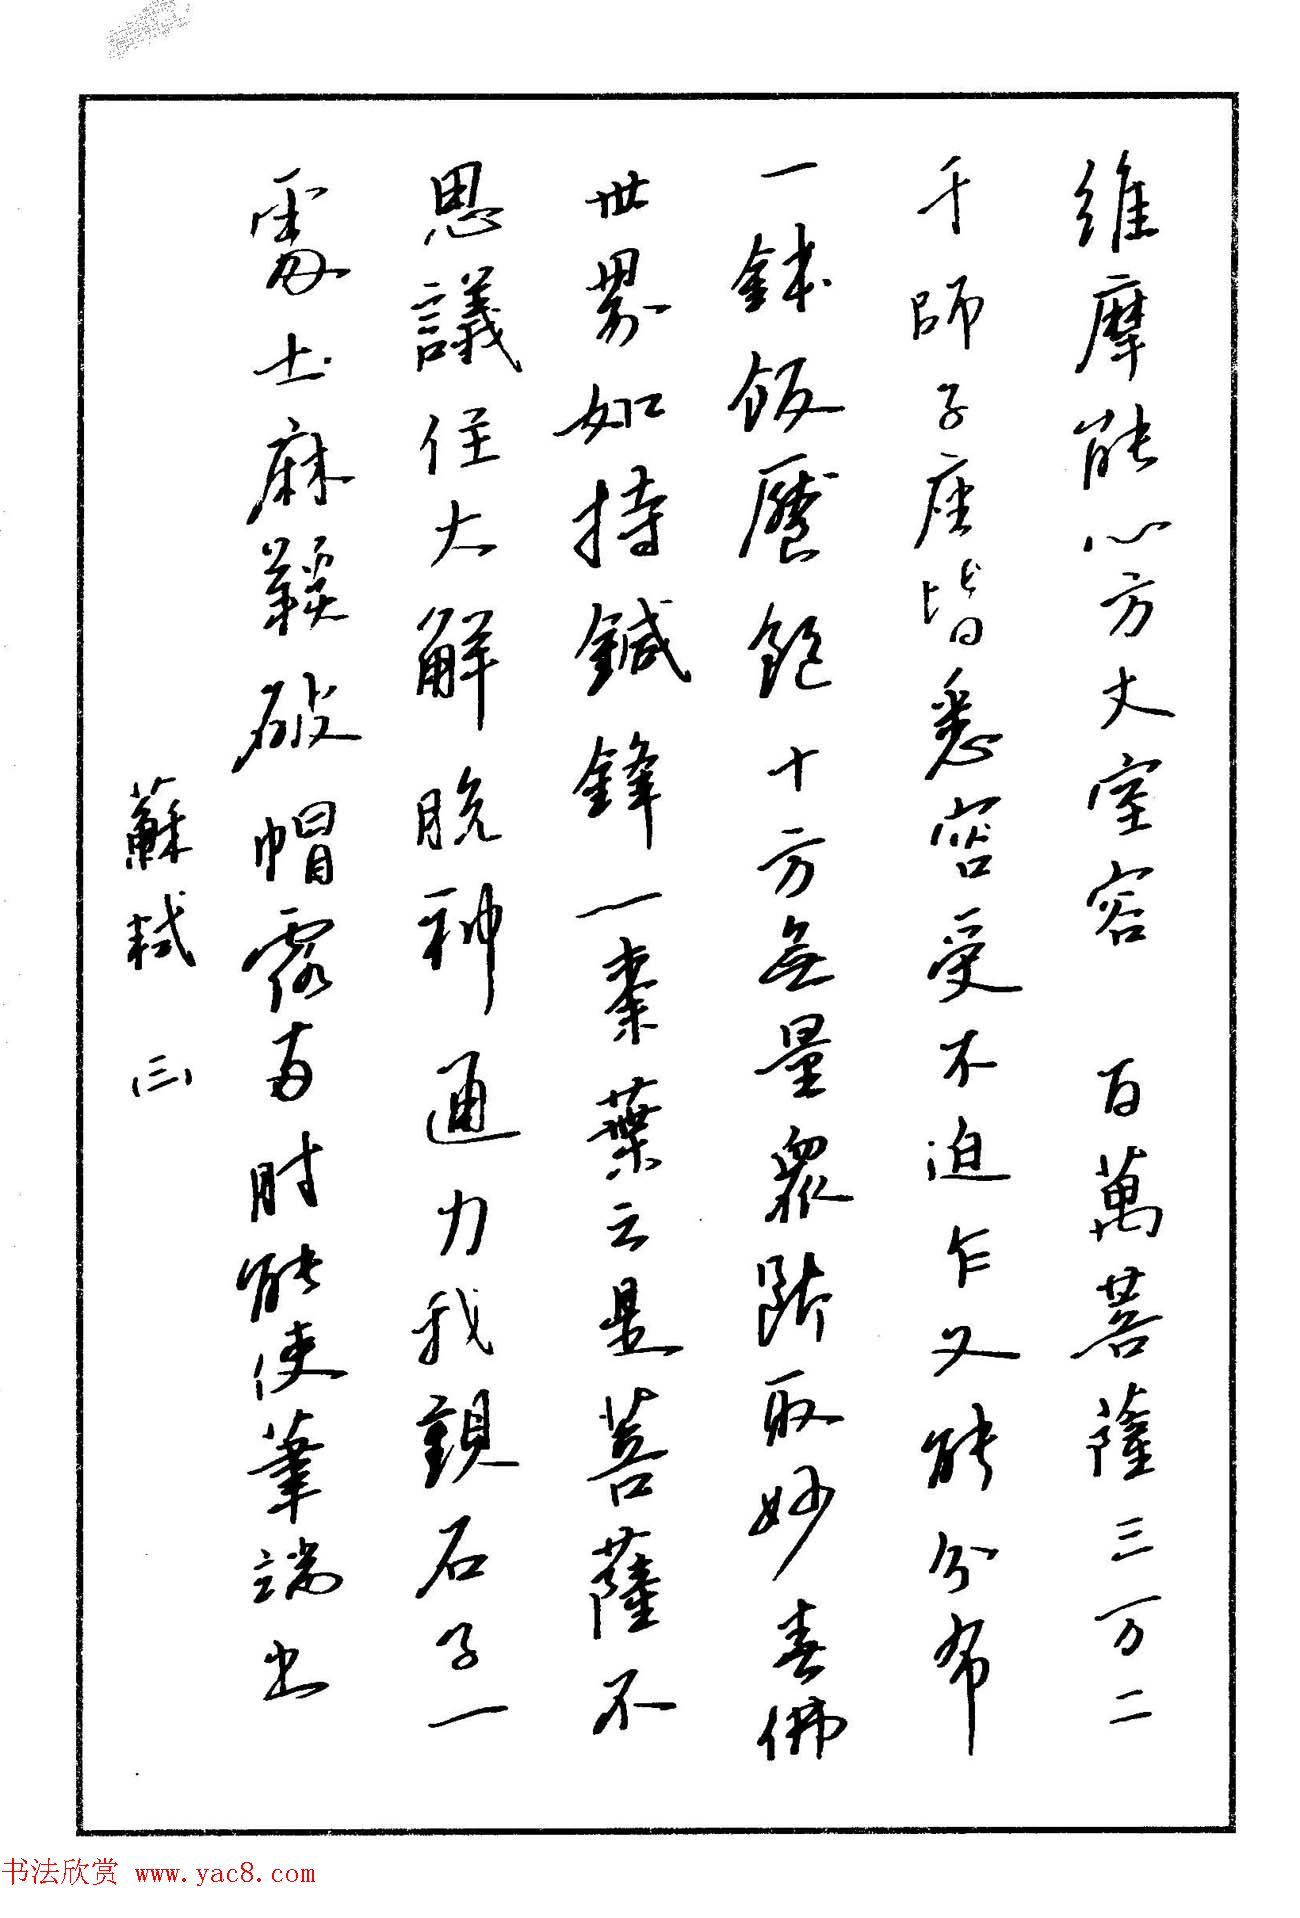 維摩能以方丈室容 百萬菩薩三万二
千師子座皆悉容受不迫乍又能分布
一鉢飯饜飽十方無量眾斷取妙喜佛
世界如持鍼鋒一棗葉云是菩薩不
思議住大解脱神通力我觀石子一
處士麻鞵破帽露兩肘能使筆端出
蘇軾 (三)
书法欣赏 www.yac8.com